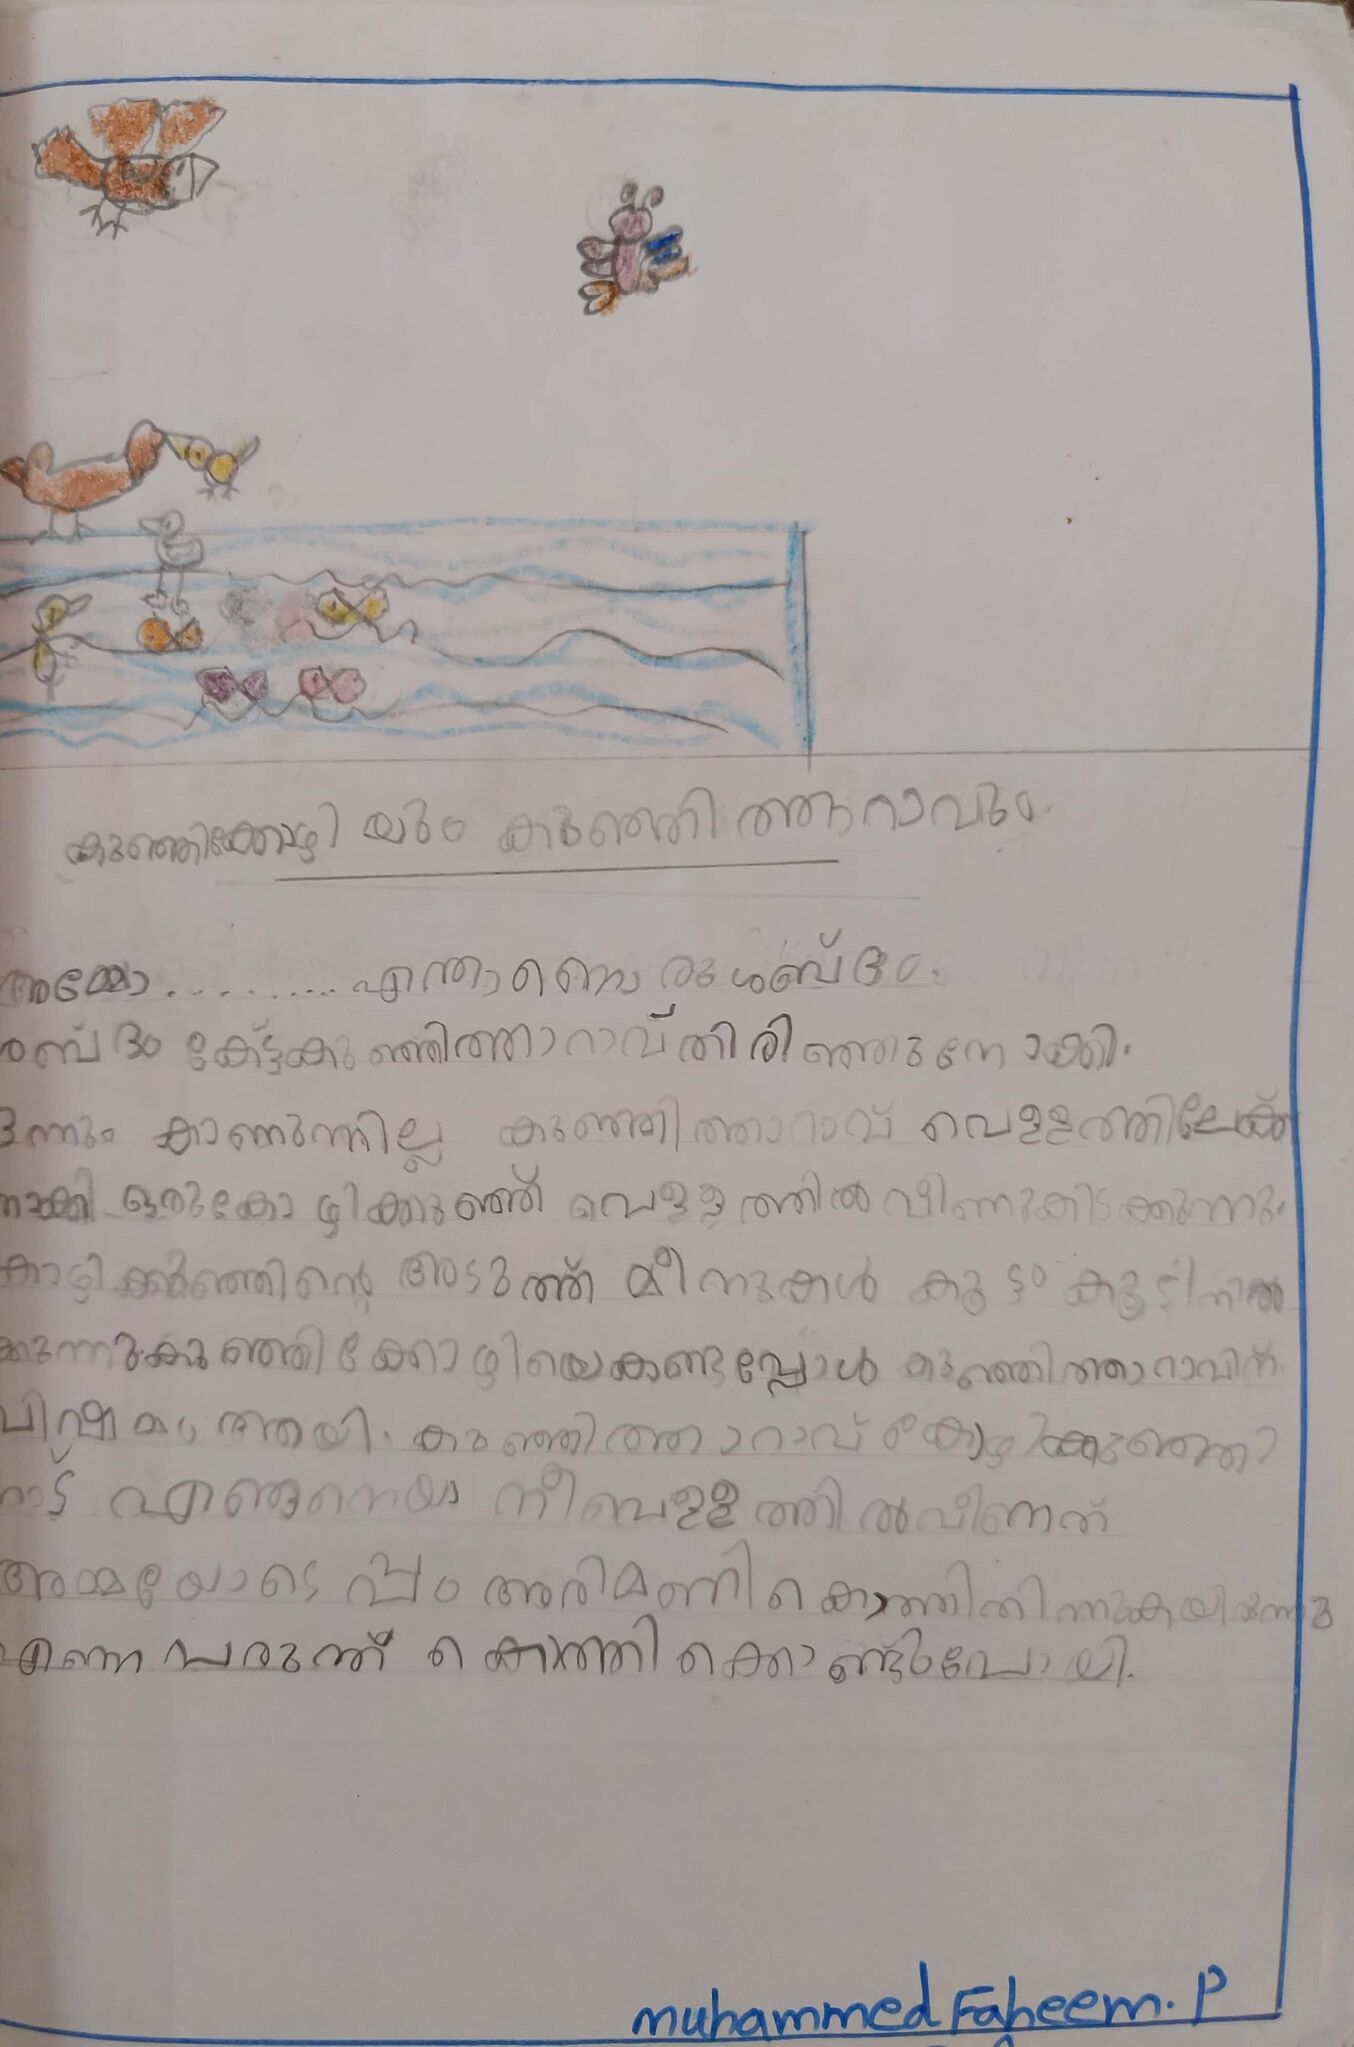 കുഞ്ഞിക്കോഴിയും കുഞ്ഞിത്താറാവും.
അമ്മോ.......... എന്താണൊരു ശബ്ദം.
ശബ്ദം കേട്ട് കുഞ്ഞിത്താറാവ് തിരിഞ്ഞു നോക്കി.
ന്നും കാണുന്നില്ല കുഞ്ഞിത്താറാവ് വെള്ളത്തിലേക്ക്
നോക്കി ഒരു കോഴിക്കുഞ്ഞ് വെള്ളത്തിൽ വീണുകിടക്കുന്നു.
കോഴിക്കുഞ്ഞിന്റെ അടുത്ത് മീനുകൾ കൂട്ടം കൂടി നിൽ
ക്കുന്നു കുഞ്ഞിക്കോഴിയെ കണ്ടപ്പോൾ കുഞ്ഞിത്താറാവിന്
വിഷമം ആയി. കുഞ്ഞിത്താറാവ് കോഴിക്കുഞ്ഞി
നോട് എങ്ങനെയാ നീ വെള്ളത്തിൽ വീണത്
അമ്മയോടൊപ്പം അരിമണി കൊത്തി തിന്നുകയിരുന്നു
എന്നെ പരുന്ത് കൊത്തിക്കൊണ്ടുപോയി.
muhammed Faheem. P